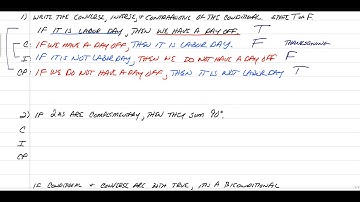 1) WRITE THE CONVERSE, INVERSE, & CONTRAPOSITIVE OF THE CONDITIONAL STATE T OR F
IF IT IS LABOR DAY, THEN WE HAVE A DAY OFF. T
C: IF WE HAVE A DAY OFF, THEN IT IS LABOR DAY. F THANKSGIVING
I: IF IT IS NOT LABOR DAY, THEN WE DO NOT HAVE A DAY OFF F
CP: IF WE DO NOT HAVE A DAY OFF, THEN IT IS NOT LABOR DAY T
2) IF 2 ∠s ARE COMPLEMENTARY, THEN THEY SUM 90°.
C
I
CP
IF CONDITIONAL & CONVERSE ARE BOTH TRUE, ITS A BICONDITIONAL